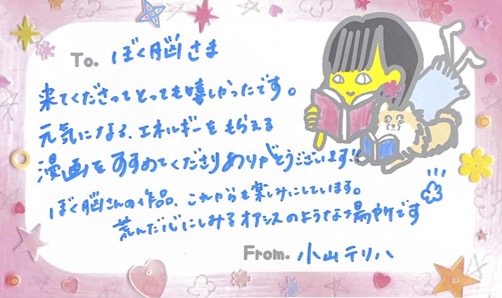 To. ぼく脳さま
来てくださってとっても嬉しかったです。
元気になる、エネルギーをもらえる
漫画をすすめてくださりありがとうございます!!
ぼく脳さんの作品、これからも楽しみにしています。
荒んだ心にしみるオアシスのような場所です
From. 小山テリハ